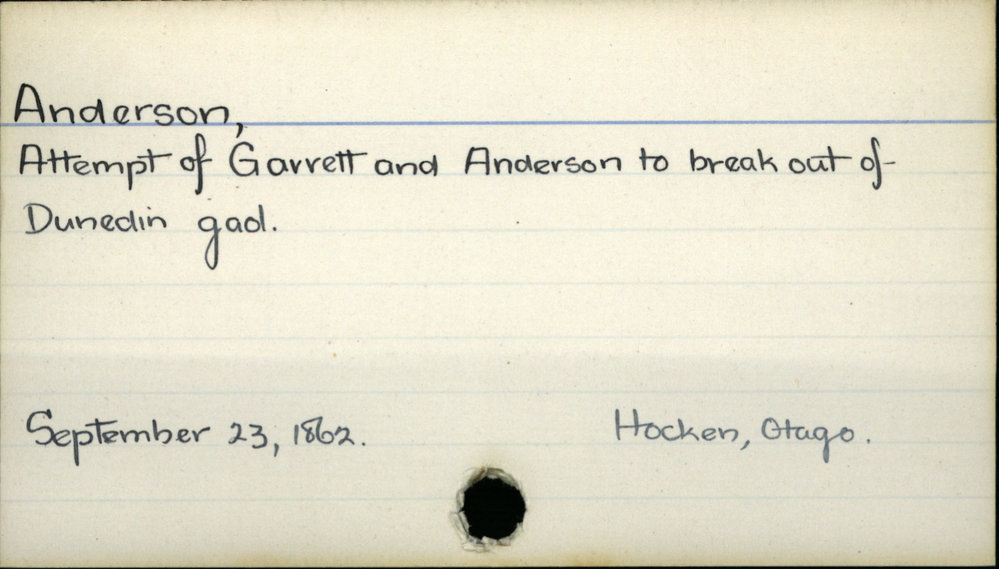 Anderson,
Attempt of Garrett and Anderson to break out of
Dunedin gaol.
September 23, 1862. Hocken, Otago.